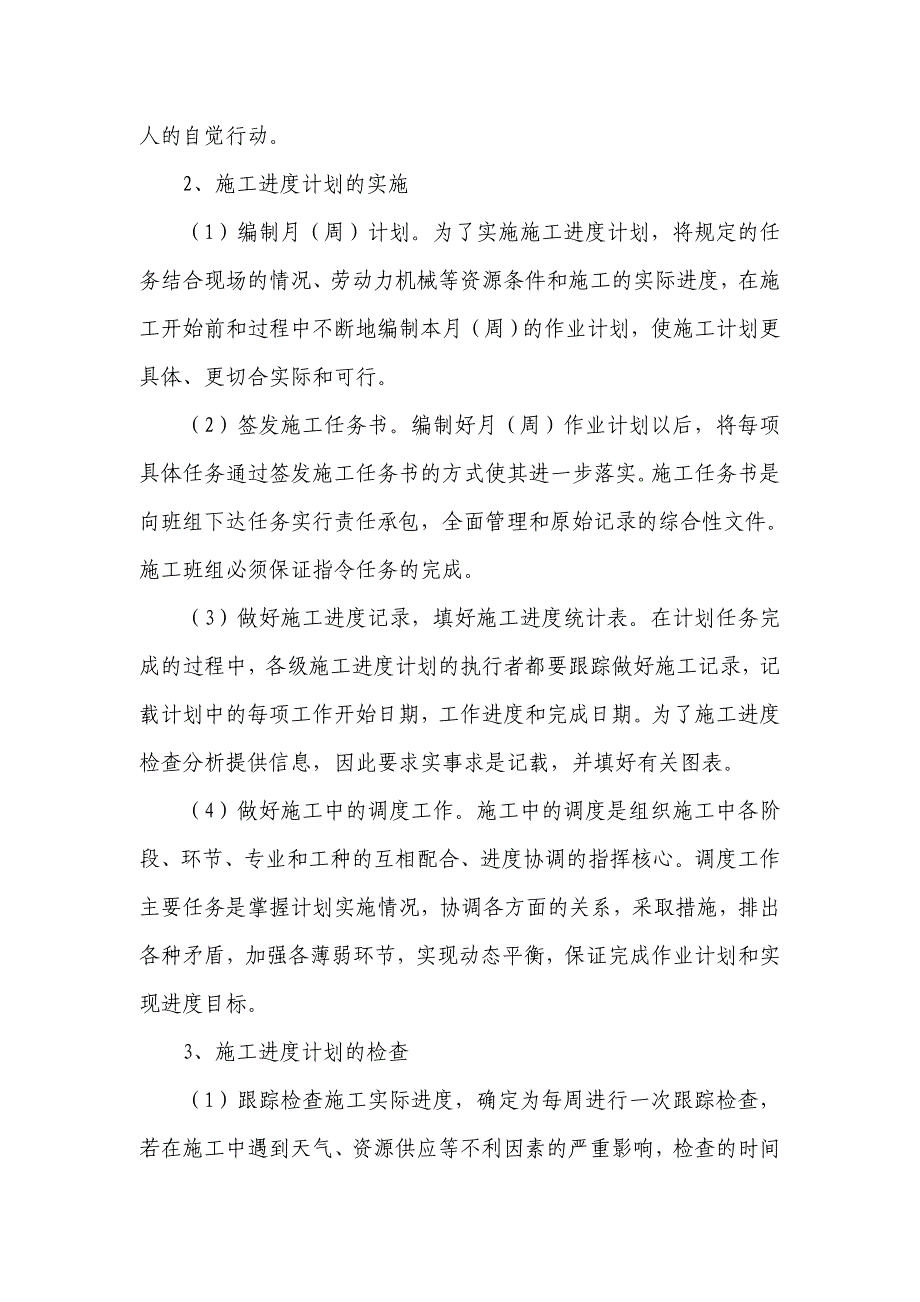 人的自觉行动。
2、施工进度计划的实施
（1）编制月（周）计划。为了实施施工进度计划，将规定的任
务结合现场的情况、劳动力机械等资源条件和施工的实际进度，在施
工开始前和过程中不断地编制本月（周）的作业计划，使施工计划更
具体、更切合实际和可行。
（2）签发施工任务书。编制好月（周）作业计划以后，将每项
具体任务通过签发施工任务书的方式使其进一步落实。施工任务书是
向班组下达任务实行责任承包，全面管理和原始记录的综合性文件。
施工班组必须保证指令任务的完成。
（3）做好施工进度记录，填好施工进度统计表。在计划任务完
成的过程中，各级施工进度计划的执行者都要跟踪做好施工记录，记
载计划中的每项工作开始日期，工作进度和完成日期。为了施工进度
检查分析提供信息，因此要求实事求是记载，并填好有关图表。
（4）做好施工中的调度工作。施工中的调度是组织施工中各阶
段、环节、专业和工种的互相配合、进度协调的指挥核心。调度工作
主要任务是掌握计划实施情况，协调各方面的关系，采取措施，排出
各种矛盾，加强各薄弱环节，实现动态平衡，保证完成作业计划和实
现进度目标。
3、施工进度计划的检查
（1）跟踪检查施工实际进度，确定为每周进行一次跟踪检查，
若在施工中遇到天气、资源供应等不利因素的严重影响，检查的时间